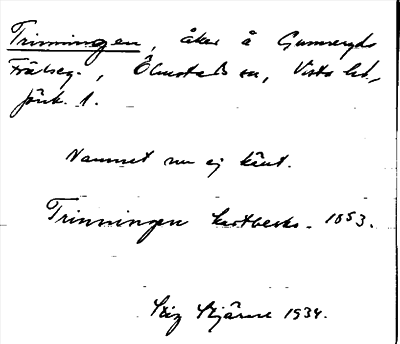 Trinningen, åker å Gunneryds
Frälseg., Ölmstads sn, Vista hd,
Jönk. l.
Namnet nu ej känt.
Trinningen kartbeskr. 1853.
Stig Bjärne 1934.